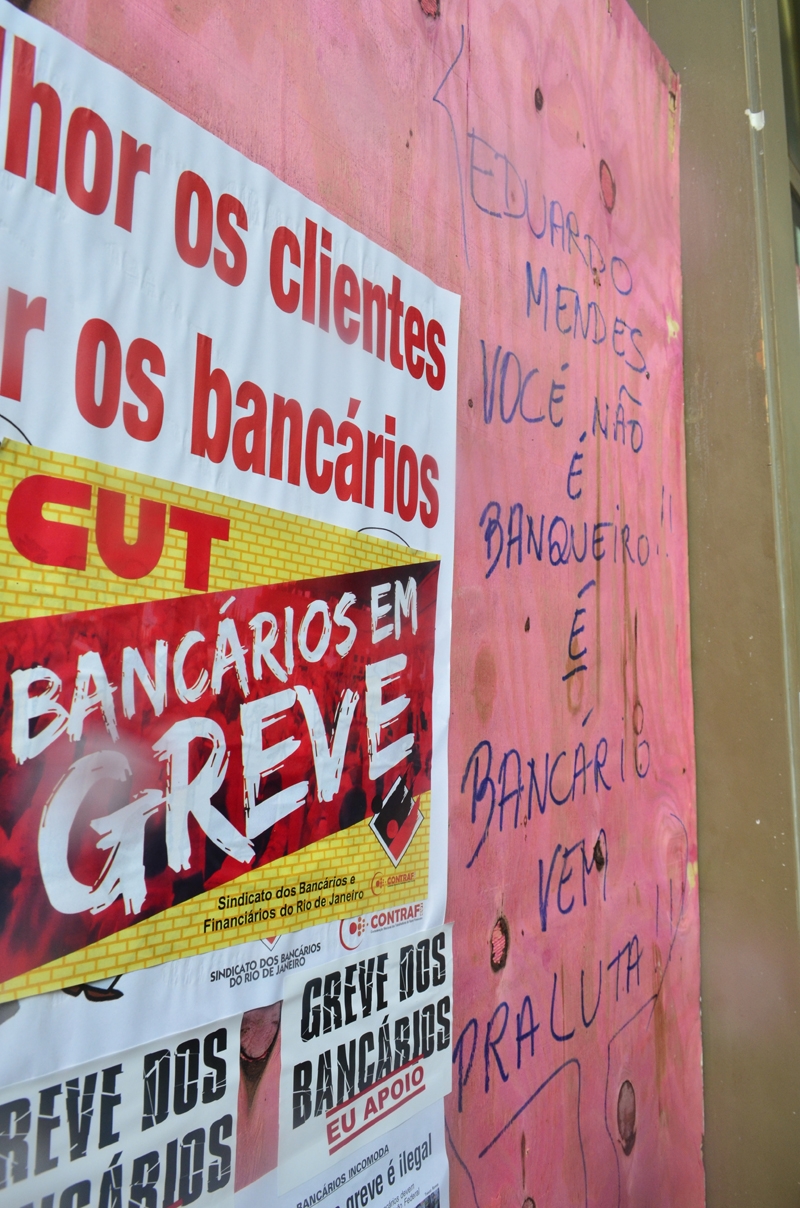 lhor os clientes
r os bancários
CUT
BANCÁRIOS EM
GREVE
Sindicato dos Bancários e
Financiários do Rio de Janeiro
CONTRAF
SINDICATO DOS BANCÁRIOS
DO RIO DE JANEIRO
CONTRAF
GREVE DOS
BANCÁRIOS
EU APOIO
REVE DOS
NCÁRIOS
BANCÁRIOS INCOMODA
greve é ilegal
EDUARDO
MENDES.
VOCÊ NÃO
É
BANQUEIRO!!
É
BANCÁRIO
VEM
PRA LUTA!!